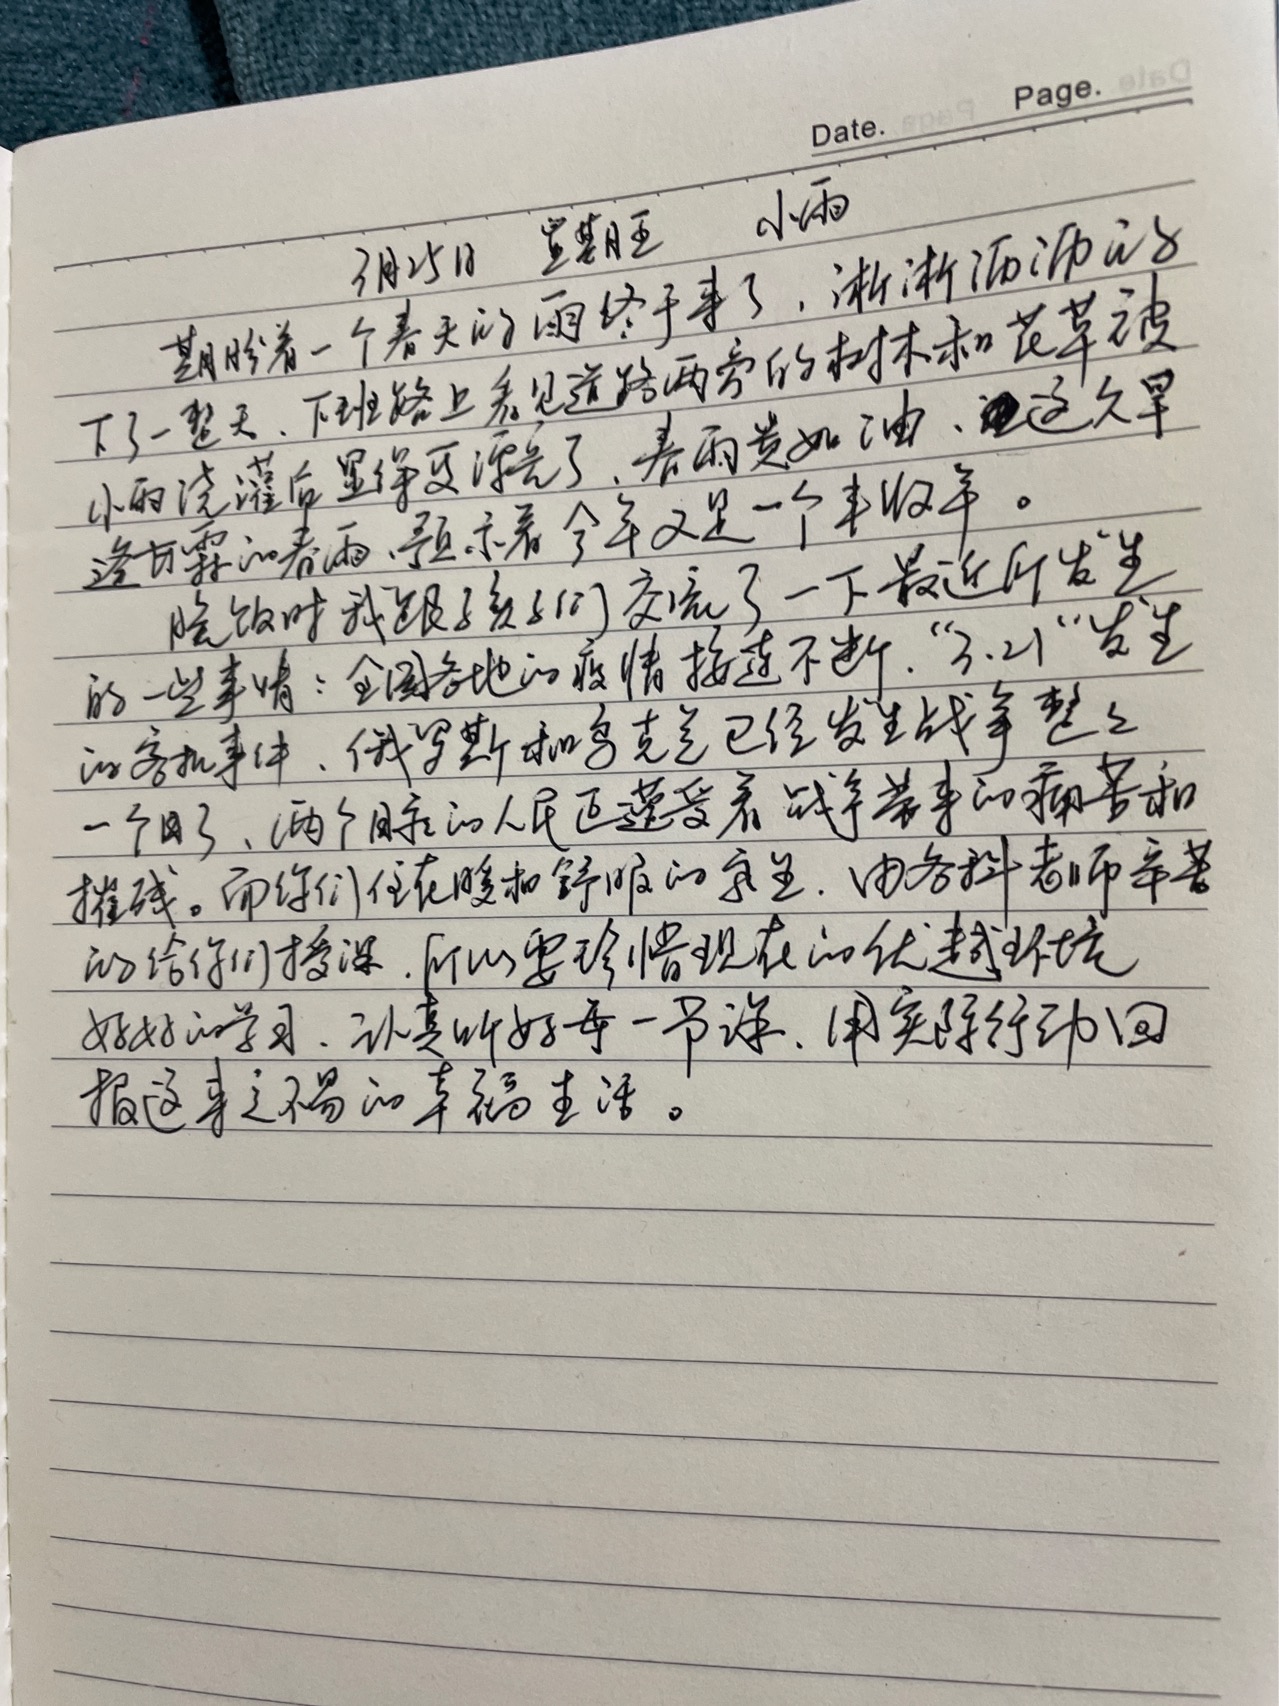 Page.
Date.
3月25日 星期五 小雨
期盼着一个春天的雨终于来了，淅淅沥沥的
下了一整天、下班路上看见道路两旁的树木和花草被
小雨浇灌后显得更漂亮了、春雨贵如油、这久旱
逢甘霖的春雨、预示着今年又是一个丰收年。
晚饭时我跟孩子们交流了一下最近所发生
的一些事情：全国各地的疫情接连不断、“3.21”发生
的客机事件、俄罗斯和乌克兰已经发生战争整整
一个月了、两个国家的人民正遭受着战争带来的痛苦和
摧残。而你们住在暖和舒服的家里、由各科老师辛苦
的给你们授课、所以要珍惜现在的优越环境
好好的学习、认真听好每一节课、用实际行动回
报这来之不易的幸福生活。